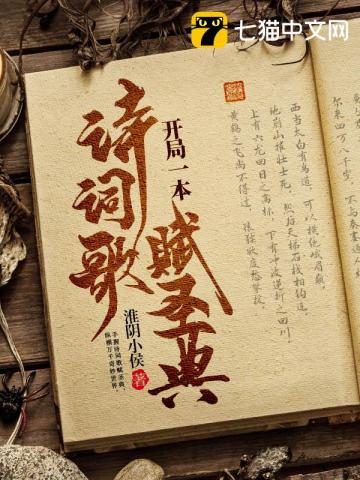 七猫中文网
开局一本
诗词歌
赋圣典
淮阴小侯 著
手握诗词歌赋圣典，
纵横万千奇妙世界。
尔来四万八千岁，不与秦塞
西当太白有鸟道，可以横绝峨眉巅。
地崩山摧壮士死，然后天梯石栈相钩连。
上有六龙回日之高标，下有冲波逆折之回川。
黄鹤之飞尚不得过，猿猱欲度愁攀援。